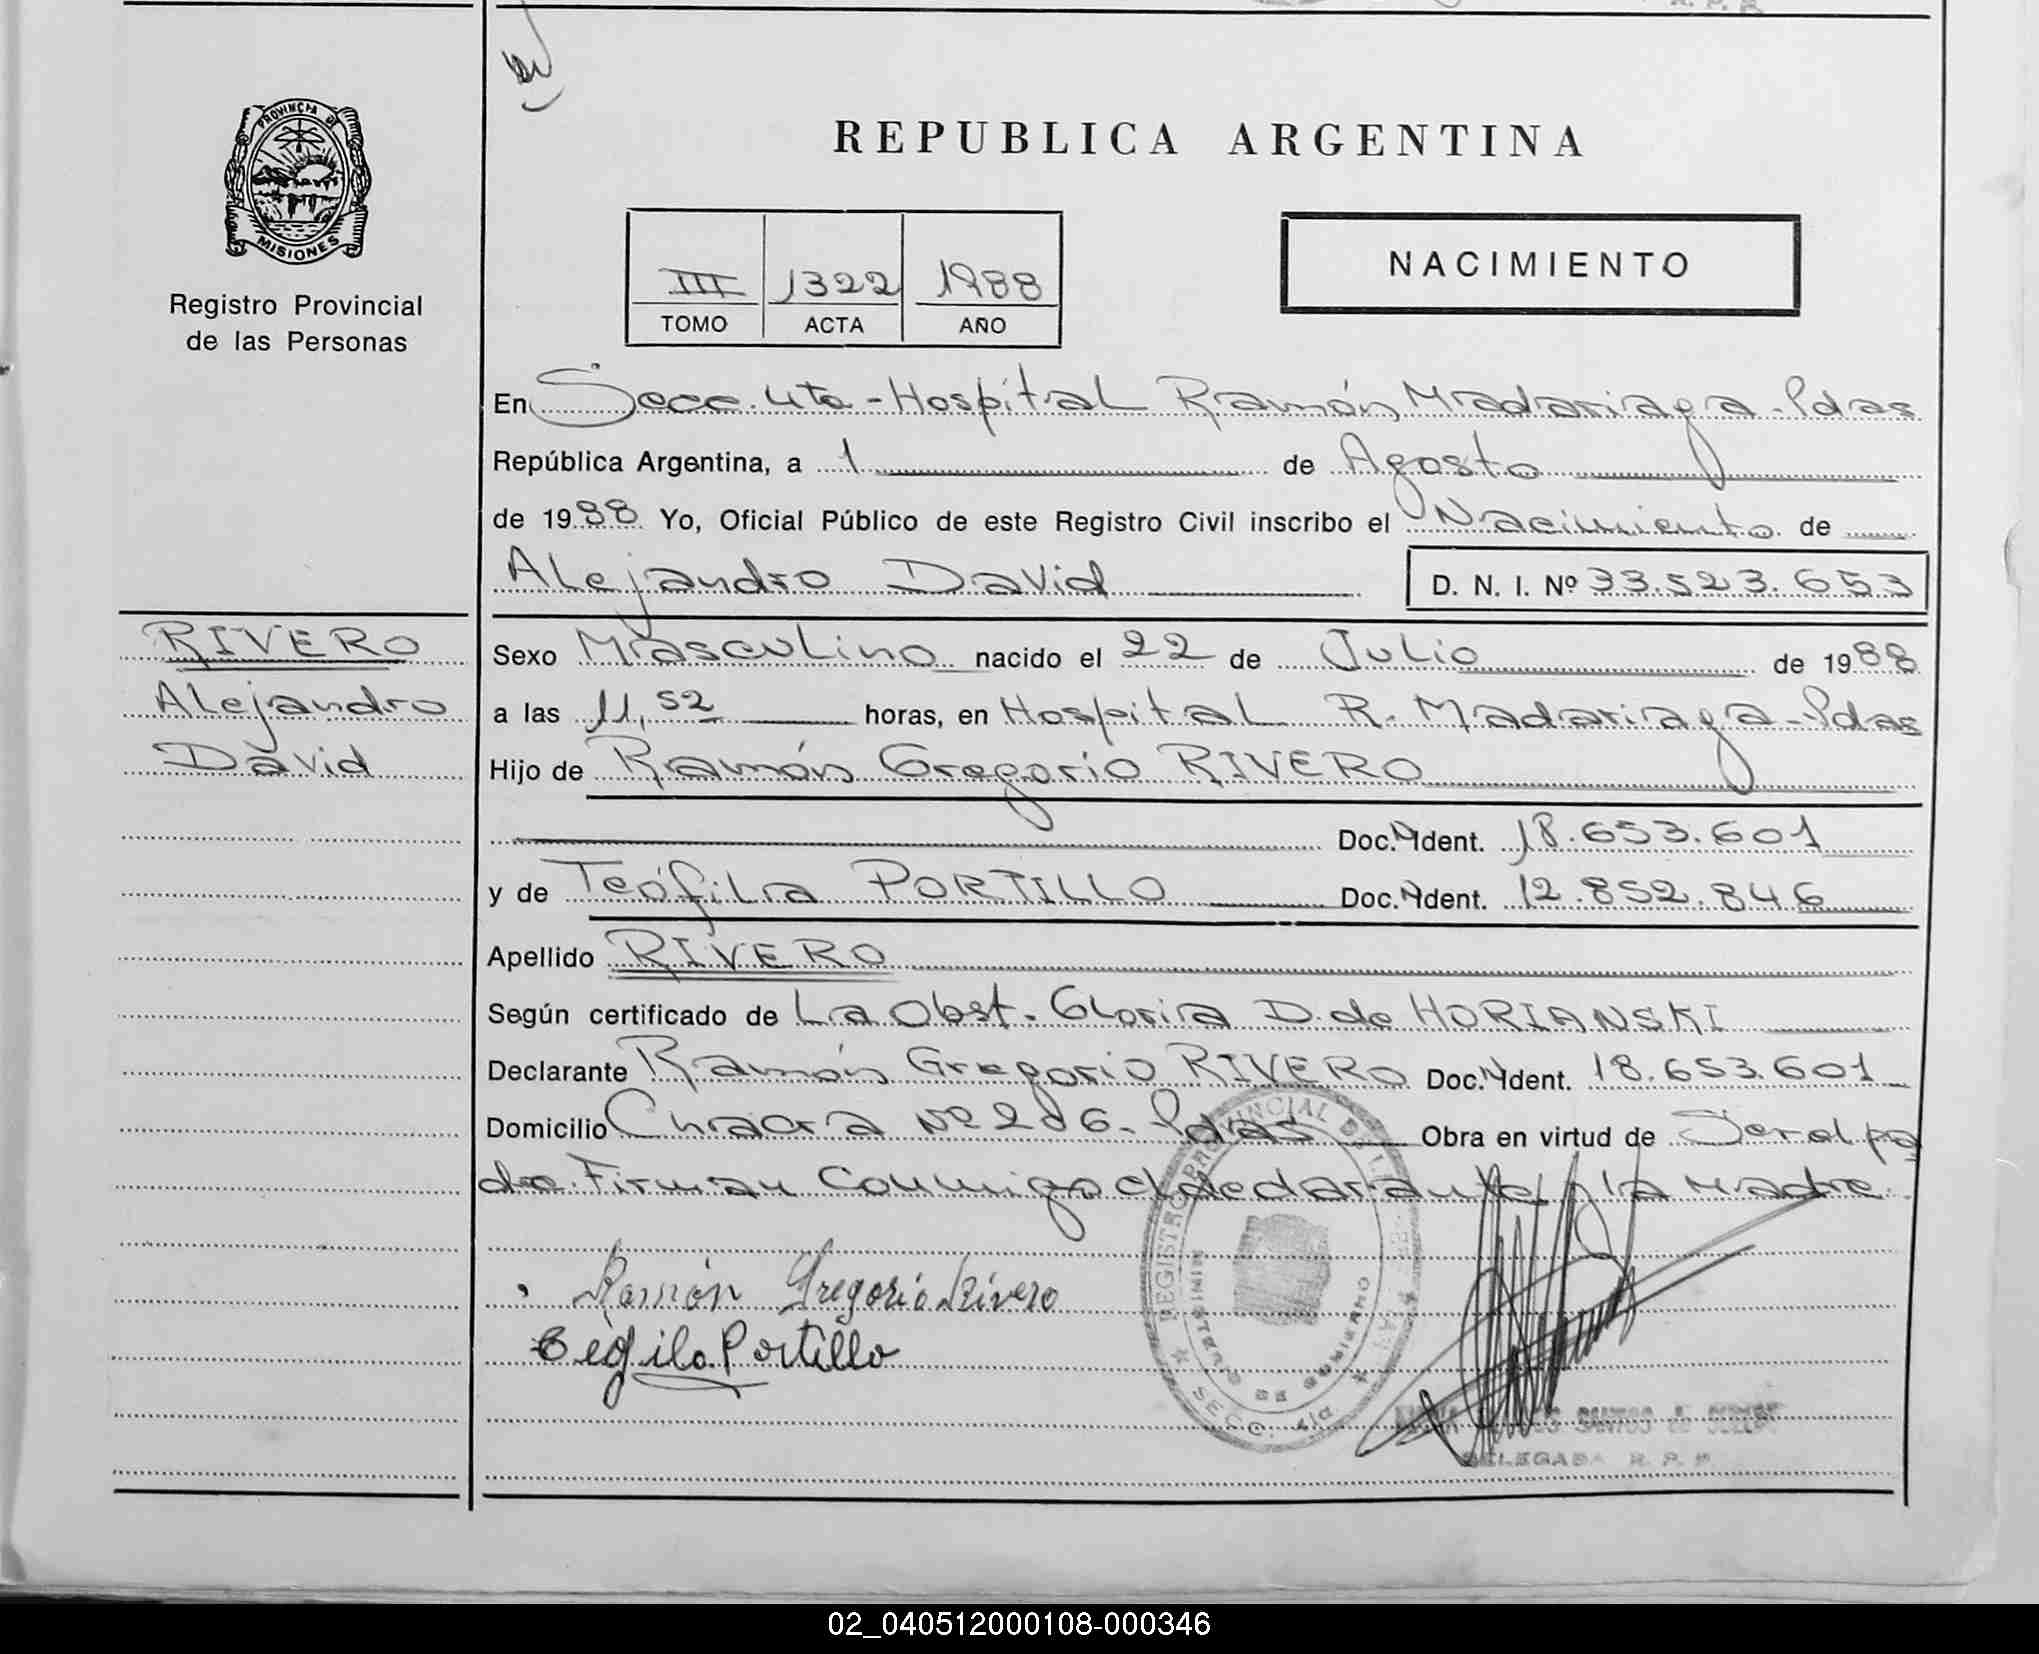 PROVINCIA DE
MISIONES
Registro Provincial
de las Personas
REPUBLICA ARGENTINA
III 1322 1988
TOMO ACTA AÑO
NACIMIENTO
En Secc. 4ta - Hospital Ramón Madariaga - Pdas
República Argentina, a 1 de Agosto
de 1988 Yo, Oficial Público de este Registro Civil inscribo el Nacimiento de
Alejandro David D. N. I. Nº 33.523.653
RIVERO
Alejandro
David
Sexo Masculino nacido el 22 de Julio de 1988
a las 11,52 horas, en Hospital R. Madariaga - Pdas
Hijo de Ramón Gregorio RIVERO
Doc. Ident. 18.653.601
y de Teófila PORTILLO Doc. Ident. 12.852.846
Apellido RIVERO
Según certificado de La Obst. Gloria D. de HORIANSKI
Declarante Ramón Gregorio RIVERO Doc. Ident. 18.653.601
Domicilio Chacra Nº 206. Pdas Obra en virtud de Ser el pa
dre. Firman conmigo el declarante y la Madre.
Ramón Gregorio Rivero
Teófila Portillo
REGISTRO PROVINCIAL DE LAS
MINISTERIO DE GOBIERNO
SECC. 4ta
SANTOS DE
DELEGADA R. P. P.
02_040512000108-000346